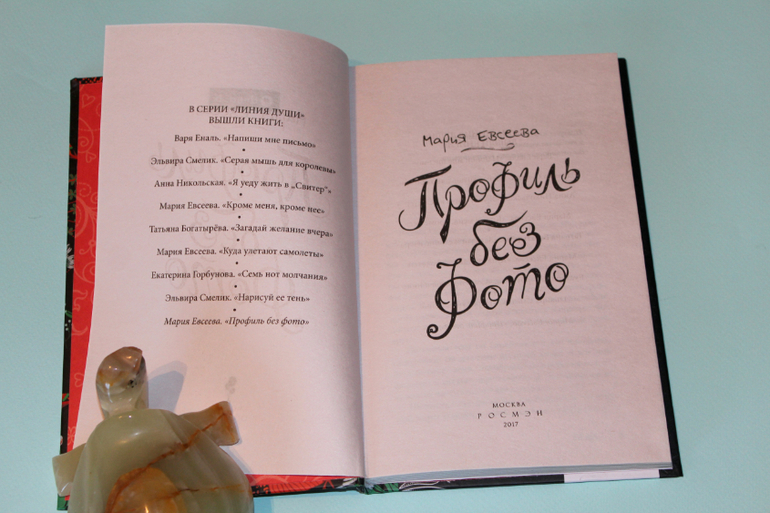 В СЕРИИ «ЛИНИЯ ДУШИ»
ВЫШЛИ КНИГИ:
Варя Еналь. «Напиши мне письмо»
•
Эльвира Смелик. «Серая мышь для королевы»
•
Анна Никольская. «Я уеду жить в „Свитер"»
•
Мария Евсеева. «Кроме меня, кроме нее»
•
Татьяна Богатырёва. «Загадай желание вчера»
•
Мария Евсеева. «Куда улетают самолеты»
•
Екатерина Горбунова. «Семь нот молчания»
•
Эльвира Смелик. «Нарисуй ее тень»
•
Мария Евсеева. «Профиль без фото»
Мария Евсеева
Профиль
без
Фото
МОСКВА
РОСМЭН
2017